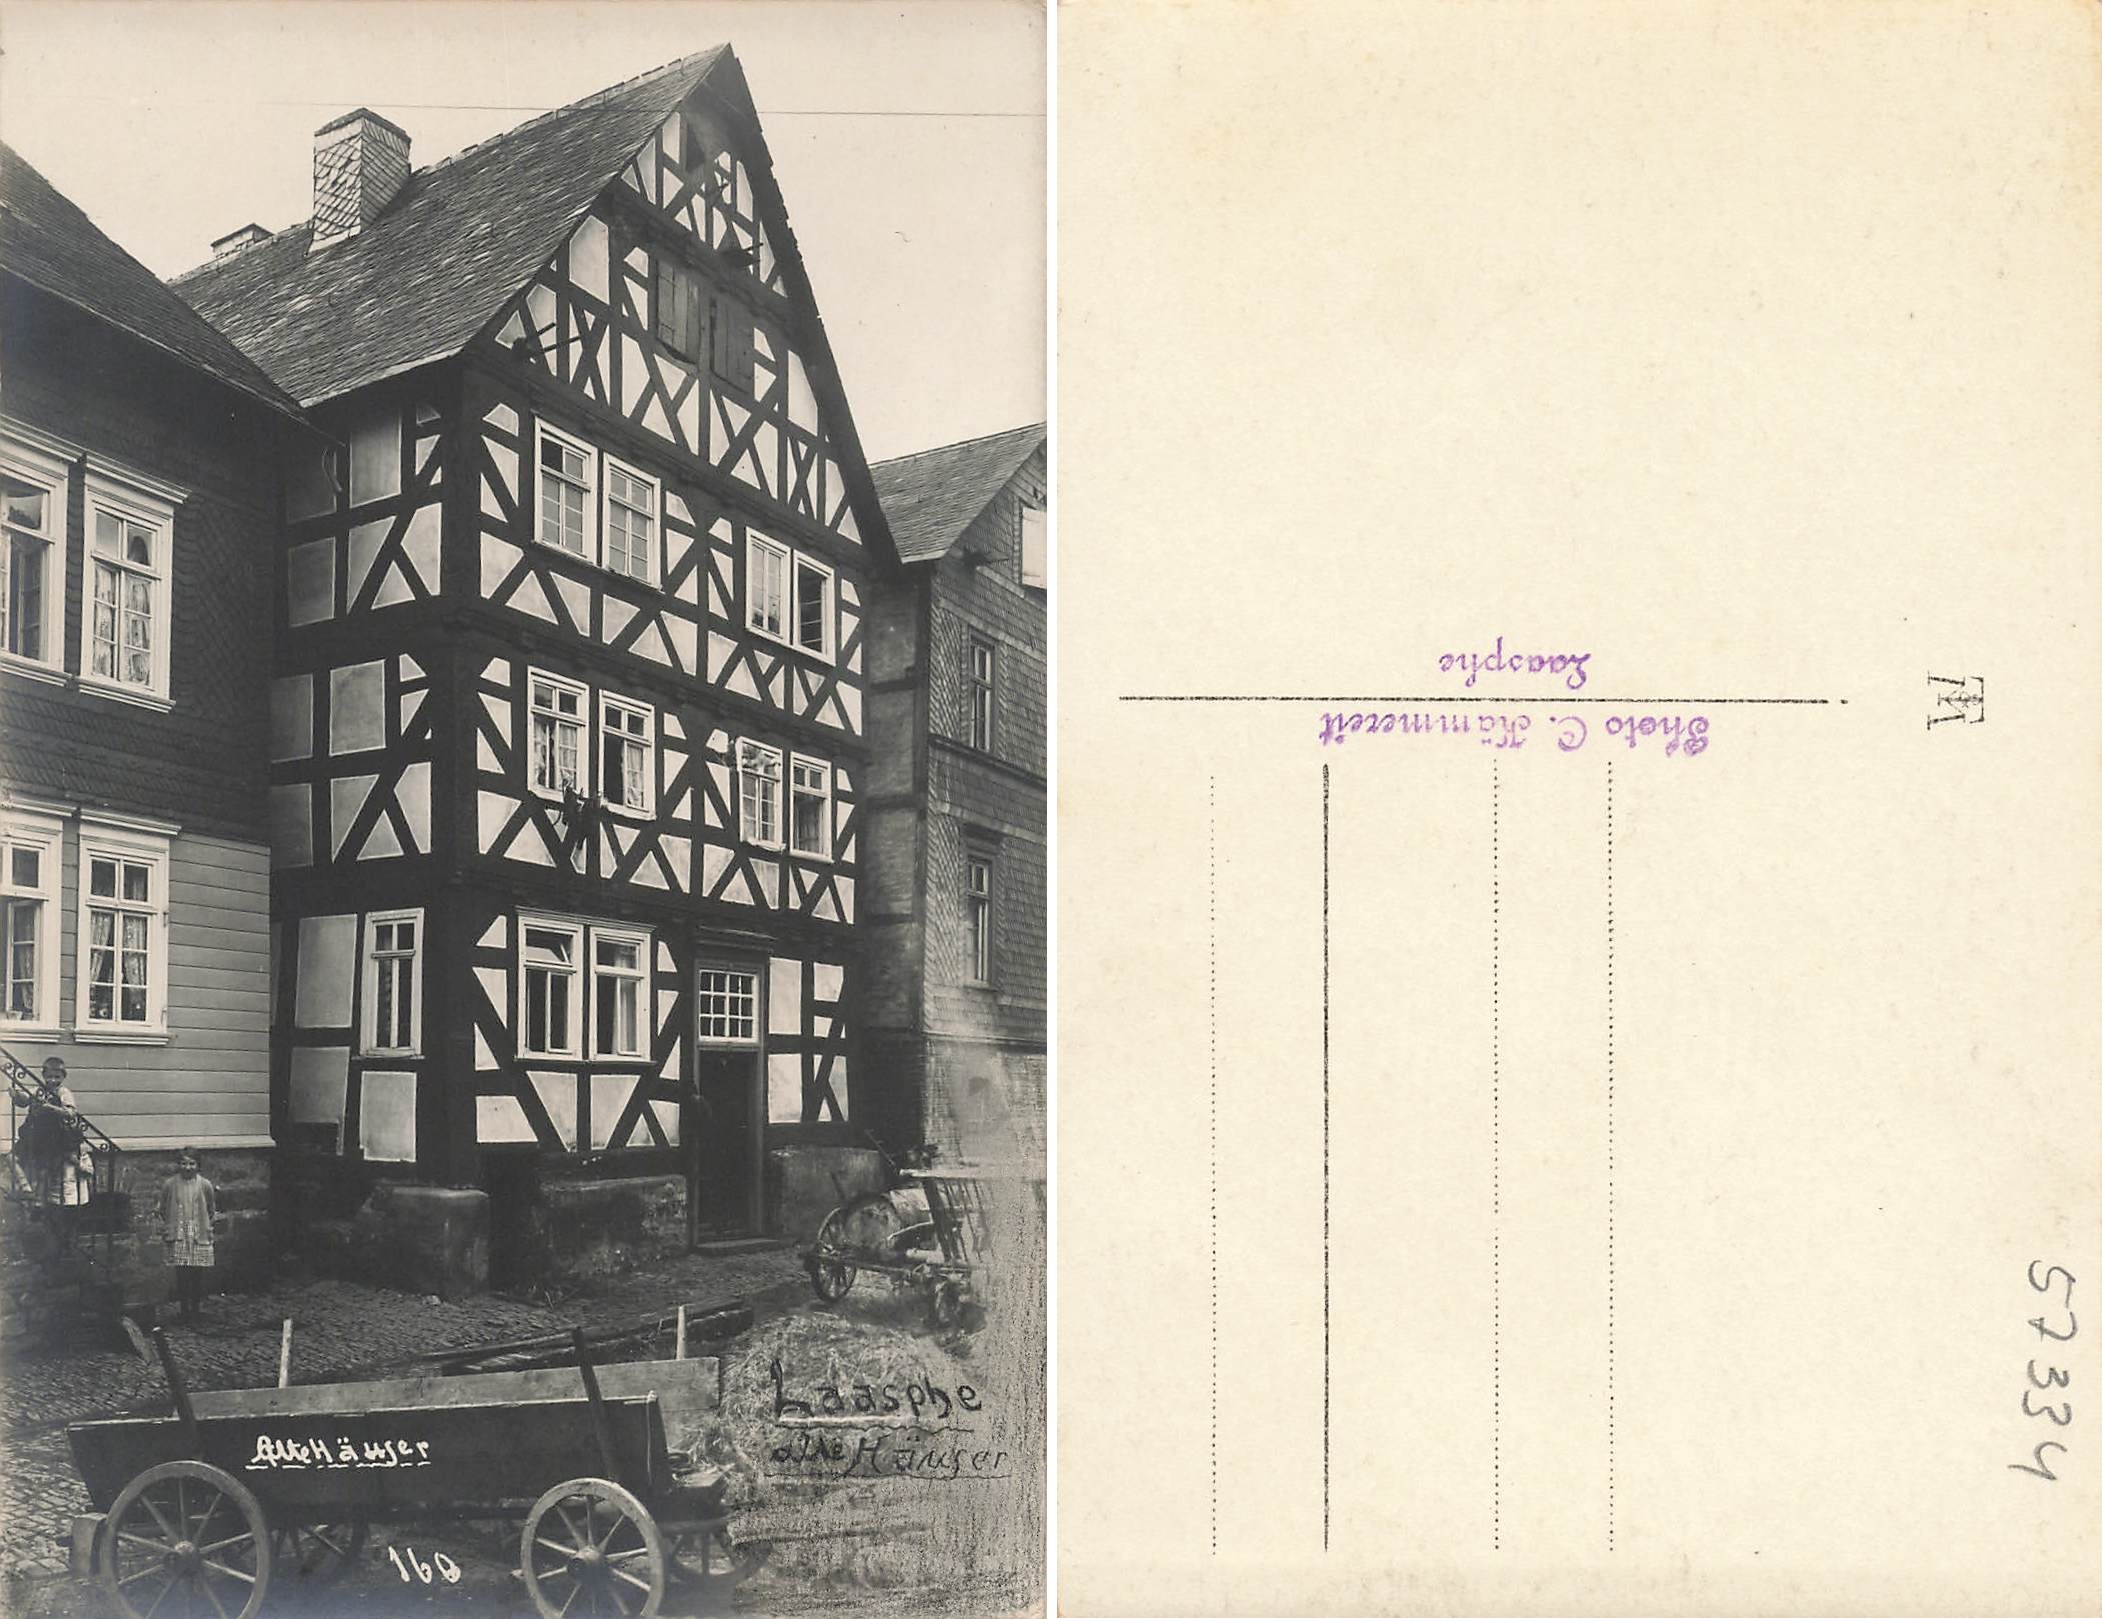 Laasphe
alte Häuser
Alte Häuser
160
Photo C. Kämmereit
Laasphe
57334